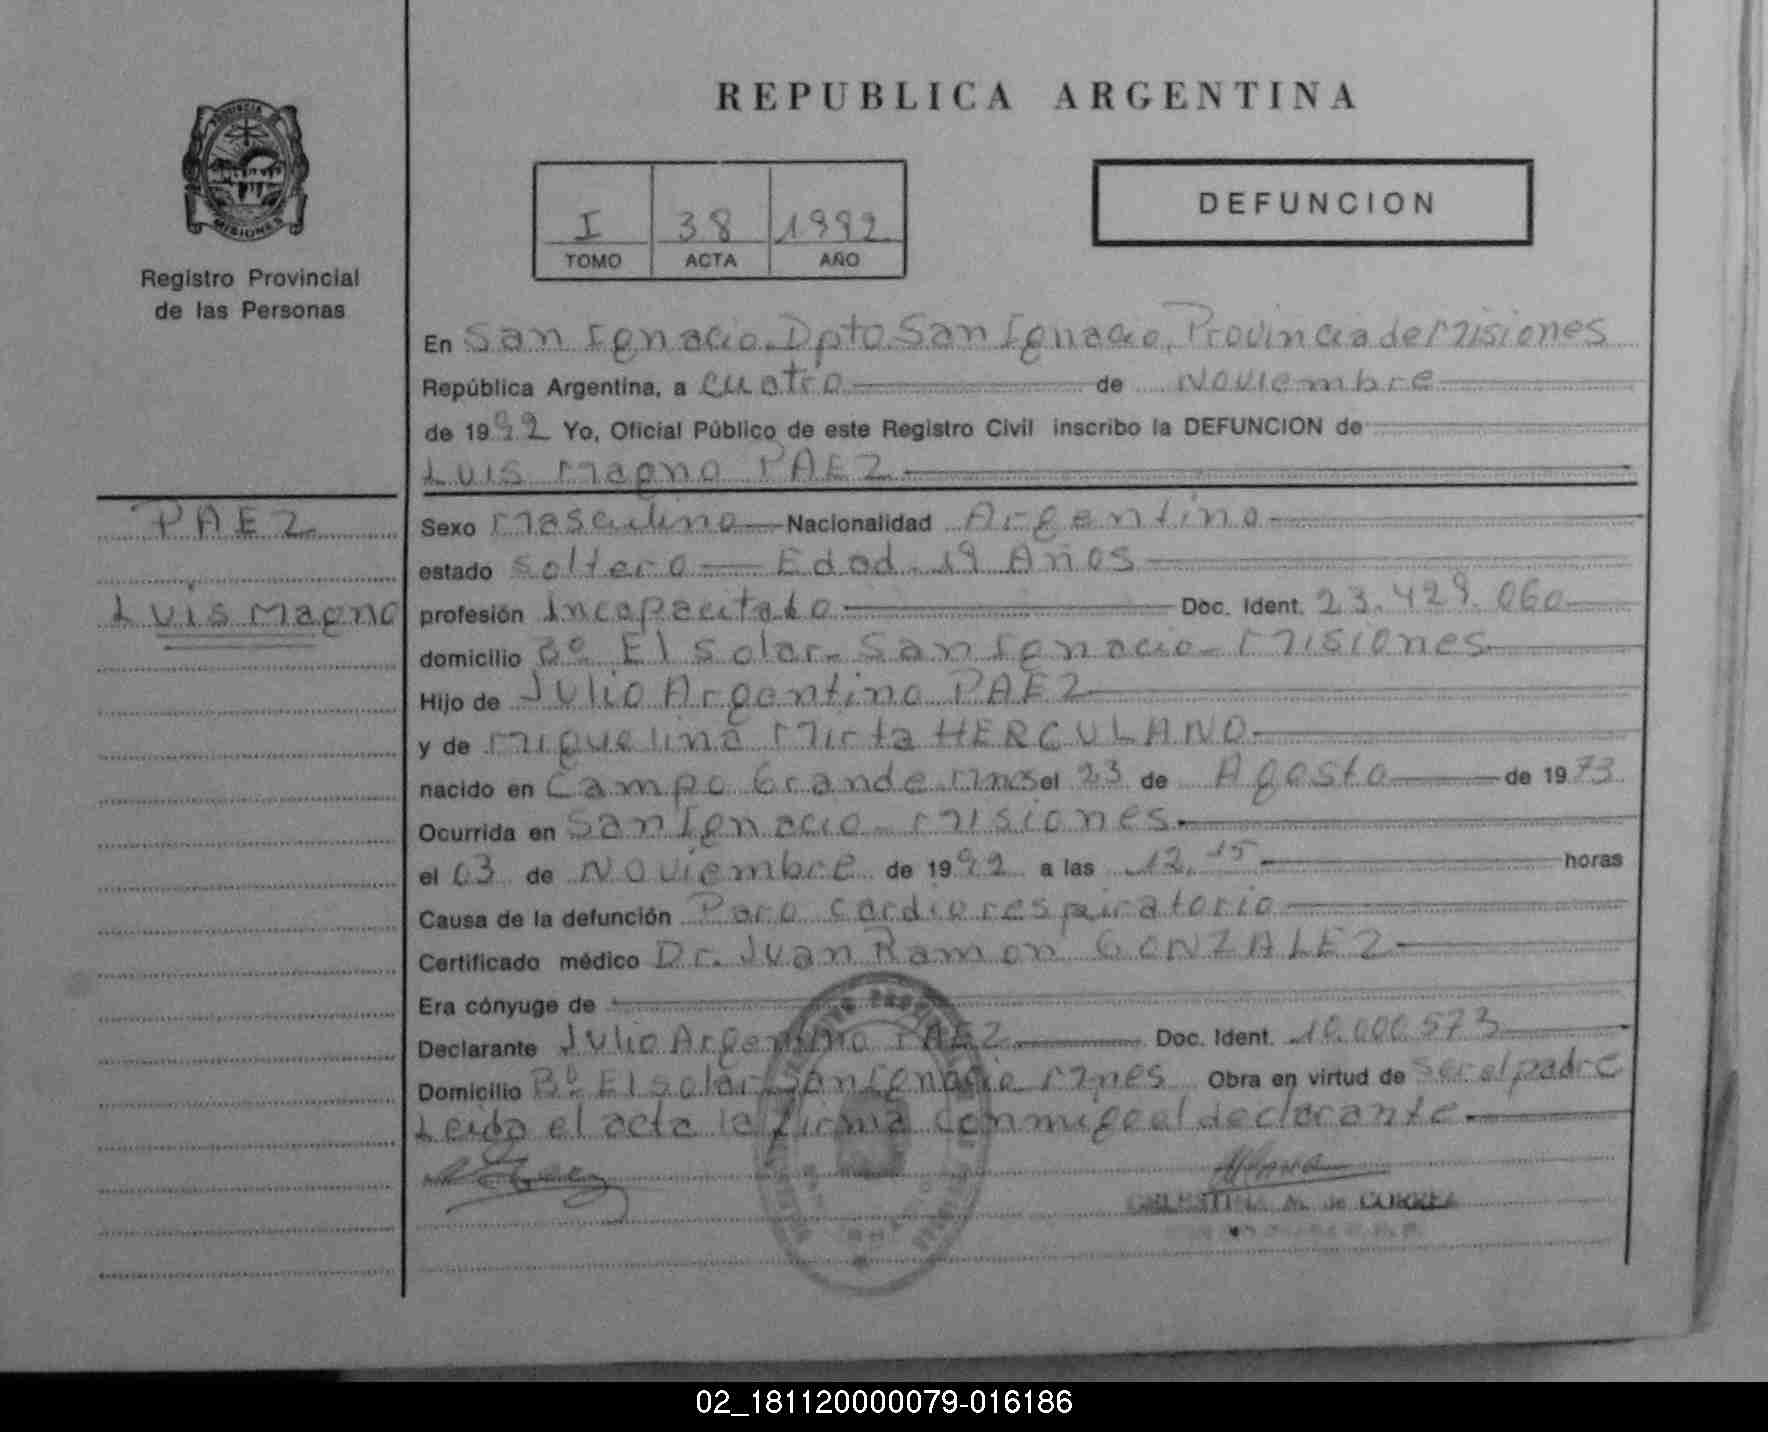 PROVINCIA DE
MISIONES
Registro Provincial
de las Personas
REPUBLICA ARGENTINA
I 38 1992
TOMO ACTA AÑO
DEFUNCION
En San Ignacio. Dpto San Ignacio, Provincia de Misiones
República Argentina, a cuatro de Noviembre
de 1992 Yo, Oficial Público de este Registro Civil inscribo la DEFUNCION de
Luis Magno PAEZ
PAEZ
Luis Magno
Sexo Masculino Nacionalidad Argentino
estado soltero Edad. 19 Años
profesión Incapacitado Doc. Ident. 23.429.060
domicilio Bº El Solar- San Ignacio- Misiones
Hijo de Julio Argentino PAEZ
y de Miguelina Mirta HERCULANO
nacido en Campo Grande Mnes el 23 de Agosto de 1973
Ocurrida en San Ignacio- Misiones
el 03 de Noviembre de 1992 a las 12,15 horas
Causa de la defunción Paro cardiorespiratorio
Certificado médico Dr. Juan Ramon GONZALEZ
Era cónyuge de
Declarante Julio Argentino PAEZ Doc. Ident. 10.000.573
Domicilio Bº El solar San Ignacio Mnes Obra en virtud de ser el padre
Leida el acta la firma conmigo el declarante
CELESTINA M. de CORREA
02_181120000079-016186